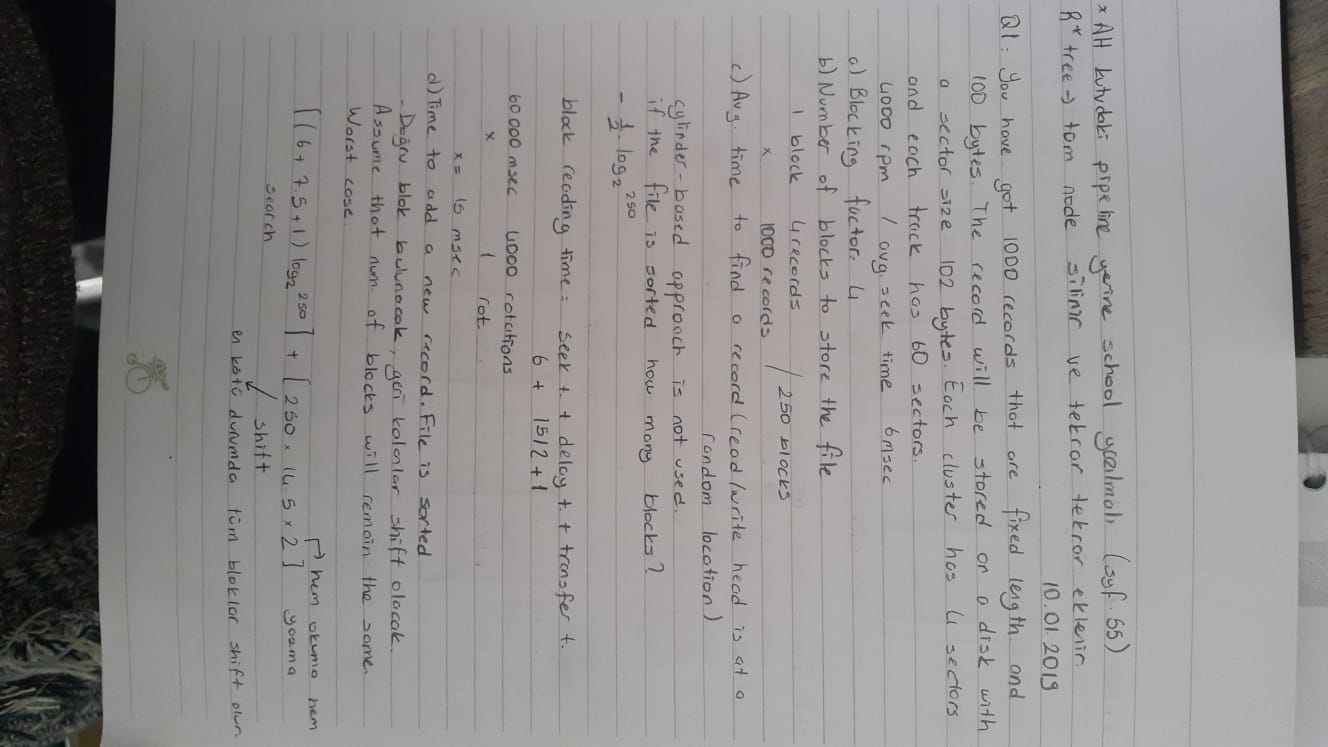 * Alt kutudaki pipeline yerine school yazılmalı (syf. 55)
R* tree → tüm node silinir ve tekrar tekrar eklenir.
10.01.2019
Q1: You have got 1000 records that are fixed length and
100 bytes. The record will be stored on a disk with
a sector size 102 bytes. Each cluster has 4 sectors
and each track has 60 sectors.
4000 rpm / avg. seek time 6msec
a) Blocking factor: 4
b) Number of blocks to store the file
1 block 4 records
x 1000 records / 250 blocks
c) Avg. time to find a record (read/write head is at a
random location)
cylinder-based approach is not used.
if the file is sorted how many blocks?
- 1/2 . log₂ ²⁵⁰
block reading time = seek t. + delay t. + transfer t.
6 + 15/2 + 1
60 000 msec 4000 rotations
x 1 rot.
x = 15 msec
d) Time to add a new record. File is sorted
- Doğru blok bulunacak, geri kalanlar shift olacak.
Assume that num. of blocks will remain the same.
Worst case
[(6 + 7.5 + 1) log₂ ²⁵⁰] + [250 x 14.5 x 2] → hem okuma hem
search yazma
shift
en kötü durumda tüm bloklar shift olur.